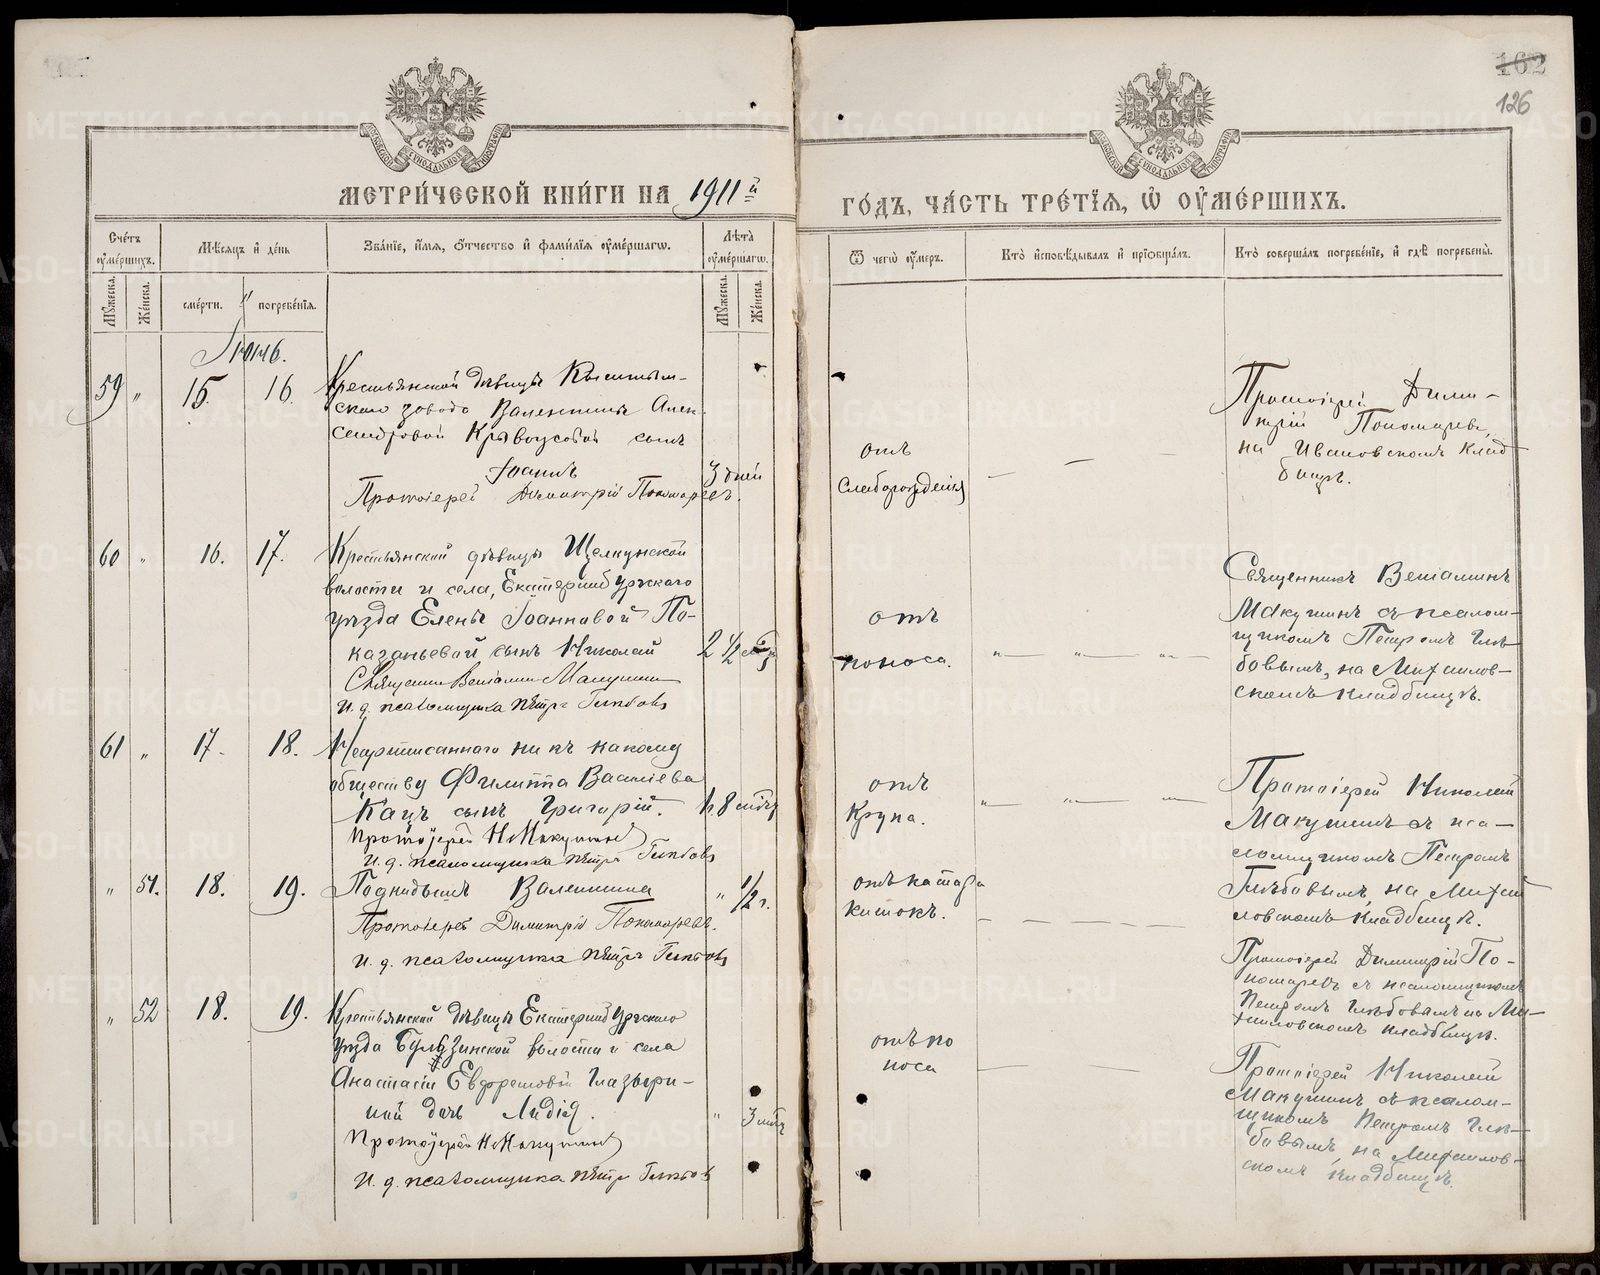 162
126
МЕТРИ́ЧЕСКОЙ КНИ́ГИ НА 1911й
ГО́ДЪ, ЧА́СТЬ ТРЕ́ТІѦ, Ѡ ОУМЕ́РШИХЪ.
Сче́тъ оуме́ршихъ.
Мѣ́сяцъ и де́нь
Зва́ніе, и́мя, о́тчество и фами́лія оуме́ршагѡ.
Лѣта̀ оуме́ршагѡ.
Ѿ чегѡ̀ оу́меръ.
Кто̀ исповѣ́дывалъ и пріѡбща́лъ.
Кто̀ соверша́лъ погребе́ніе, и гдѣ̀ погребе́ны.
Му́жеска.
Же́нска.
сме́рти.
погребе́нія.
Му́жеска.
Же́нска.
Іюнь.
59 " 15. 16. Крестьянской дѣвицы Кыштым-
скаго завода Валентины Алек-
сандровой Кривоусовой сынъ
Іоаннъ 3 дней
Протоіерей Димитрій Пономаревъ.
отъ
слаборожденія
Протоіерей Дими-
трій Пономаревъ,
на Ивановскомъ клад-
бищѣ.
60 " 16. 17. Крестьянской дѣвицы Щелкунской
волости и села, Екатеринбургскаго
уѣзда Елены Іоанновой По-
казаньевой сынъ Николай 2 1/2
Священникъ Веніаминъ Макушинъ
И. д. псаломщика Петръ Глѣбовъ
отъ
поноса.
Священникъ Веніаминъ
Макушинъ съ псалом-
щикомъ Петромъ Глѣ-
бовымъ, на Михайлов-
скомъ кладбищѣ.
61 " 17. 18. Неприписаннаго ни къ какому
обществу Филиппа Васильева
Кацъ сынъ Григорій. 8 мѣс
Протоіерей Н Макушинъ
И. д. псаломщика Петръ Глѣбовъ
отъ
Крупа.
Протоіерей Николай
Макушинъ съ пса-
ломщикомъ Петромъ
Глѣбовымъ, на Михай-
ловскомъ кладбищѣ.
" 51. 18. 19. Подкидышъ Валентина " 1/2 г.
Протоіерей Димитрій Пономаревъ.
И. д. псаломщика Петръ Глѣбовъ
отъ катара
кишокъ.
Протоіерей Димитрій По-
номаревъ съ псаломщикомъ
Петромъ Глѣбовымъ на Ми-
хайловскомъ кладбищѣ.
" 52 18. 19. Крестьянской дѣвицы Екатеринбургскаго
уѣзда Булзинской волости и села
Анастасіи Глазыри-
ной дочь Лидія. " 3 мѣс
Протоіерей Н Макушинъ
И. д. псаломщика Петръ Глѣбовъ
отъ по
носа
Протоіерей Николай
Макушинъ съ псалом-
щикомъ Петромъ Глѣ-
бовымъ на Михайлов-
скомъ кладбищѣ.
METRIKI.GASO-URAL.RU